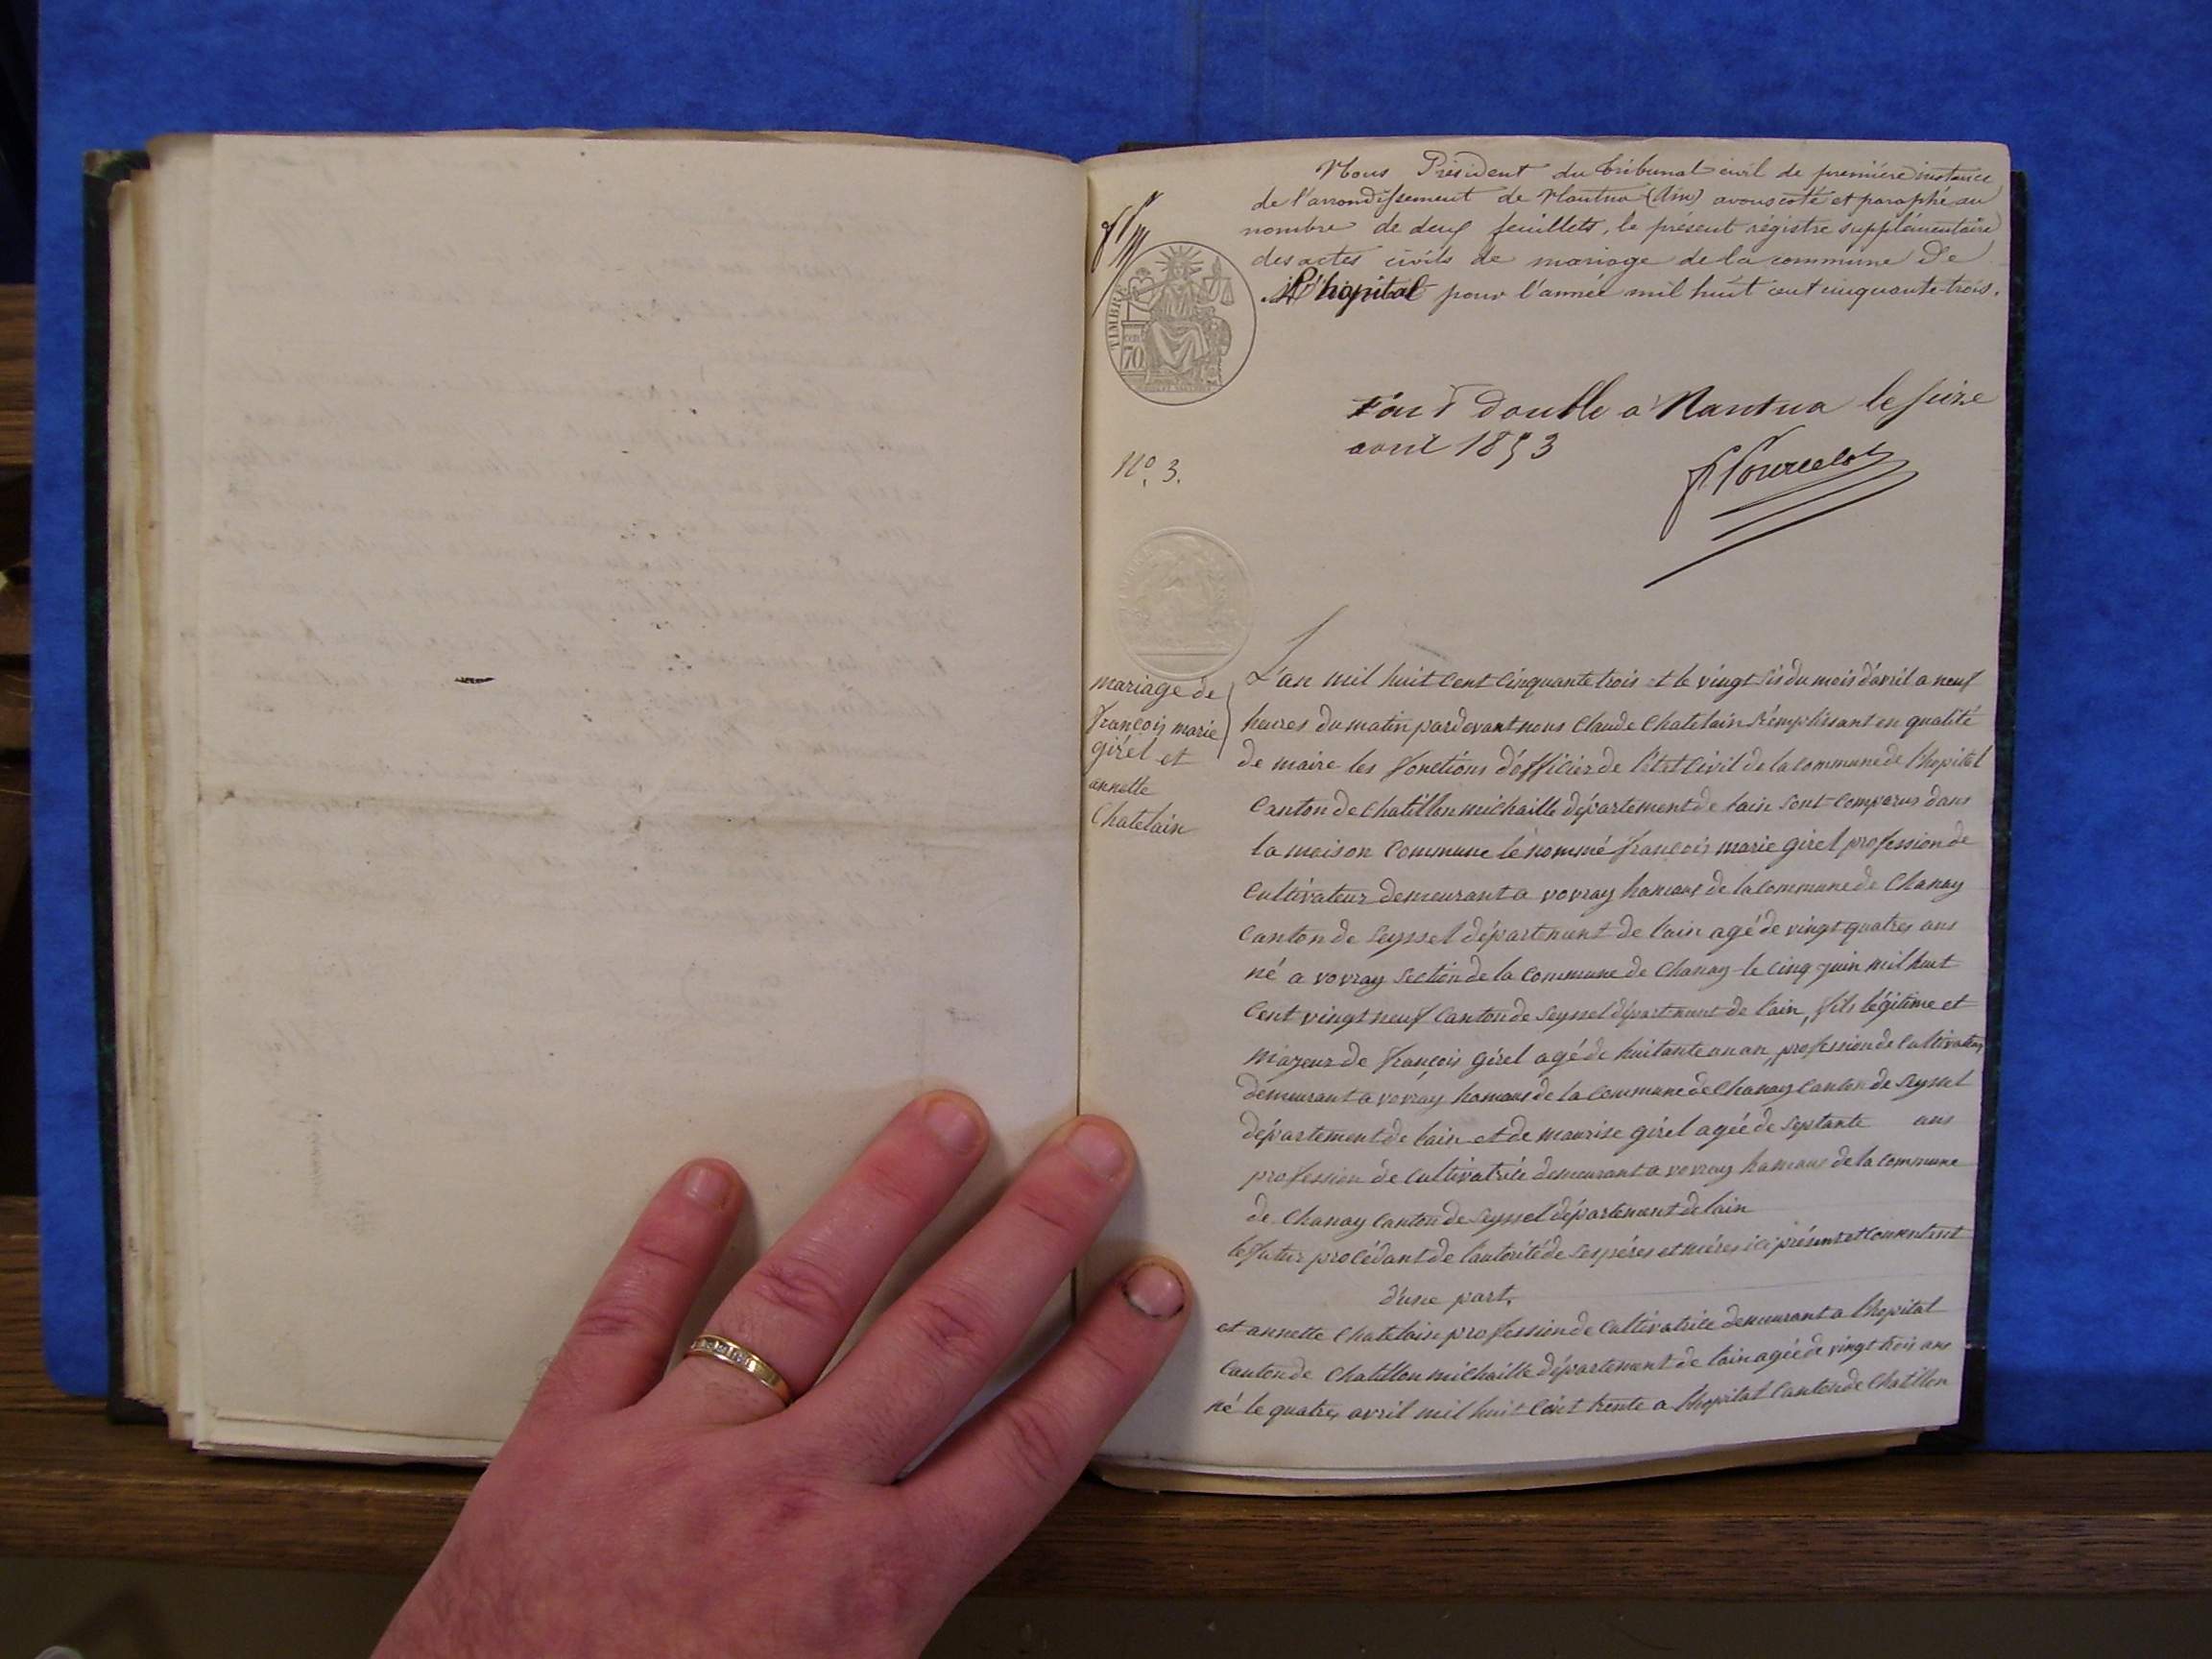 Nous Président du tribunal civil de première instance
de l'arrondissement de Nantua (Ain) avons coté et paraphé au
nombre de deux feuillets, le présent régistre supplémentaire
des actes civils de mariage de la commune de
L'hopital pour l'année mil huit cent cinquante-trois.
TIMBRE
70
Fait double a Nantua le seize
avril 1853
No. 3.
mariage de
françois marie
girel et
annette
Chatelain
L'an mil huit cent cinquante trois et le vingt six du mois d'avril a neuf
heures du matin pardevant nous Claude Chatelain Remplissant en qualité
de maire les fonctions d'officier de l'état Civil de la Commune de lhopital
Canton de Chatillon michaille département de lain sont Comparus dans
la maison Commune le nommé françois marie girel profession de
Cultivateur demeurant a vovray hameaux de la Commune de Chanay
Canton de Seyssel département de lain agé de vingt quatres ans
né a vovray Section de la Commune de Chanay le Cinq juin mil huit
Cent vingt neuf Canton de Seyssel département de lain, fils légitime et
majeur de françois girel agé de huitante un an, profession de Cultivateur
demeurant a vovray hameaux de la Commune de Chanay Canton de Seyssel
département de lain et de maurise girel agée de septante ans
profession de Cultivatrice demeurant a vovray hameaux de la Commune
de Chanay Canton de Seyssel département de lain
le futur procédant de l'autorité de Ses péres et méres ici présent et Consentent
d'une part,
et annette Chatelain profession de Cultivatrice demeurant a lhopital
Canton de Chatillon michaille département de lain agée de vingt trois ans
né le quatres avril mil huit Cent trente a lhopital Canton de Chatillon